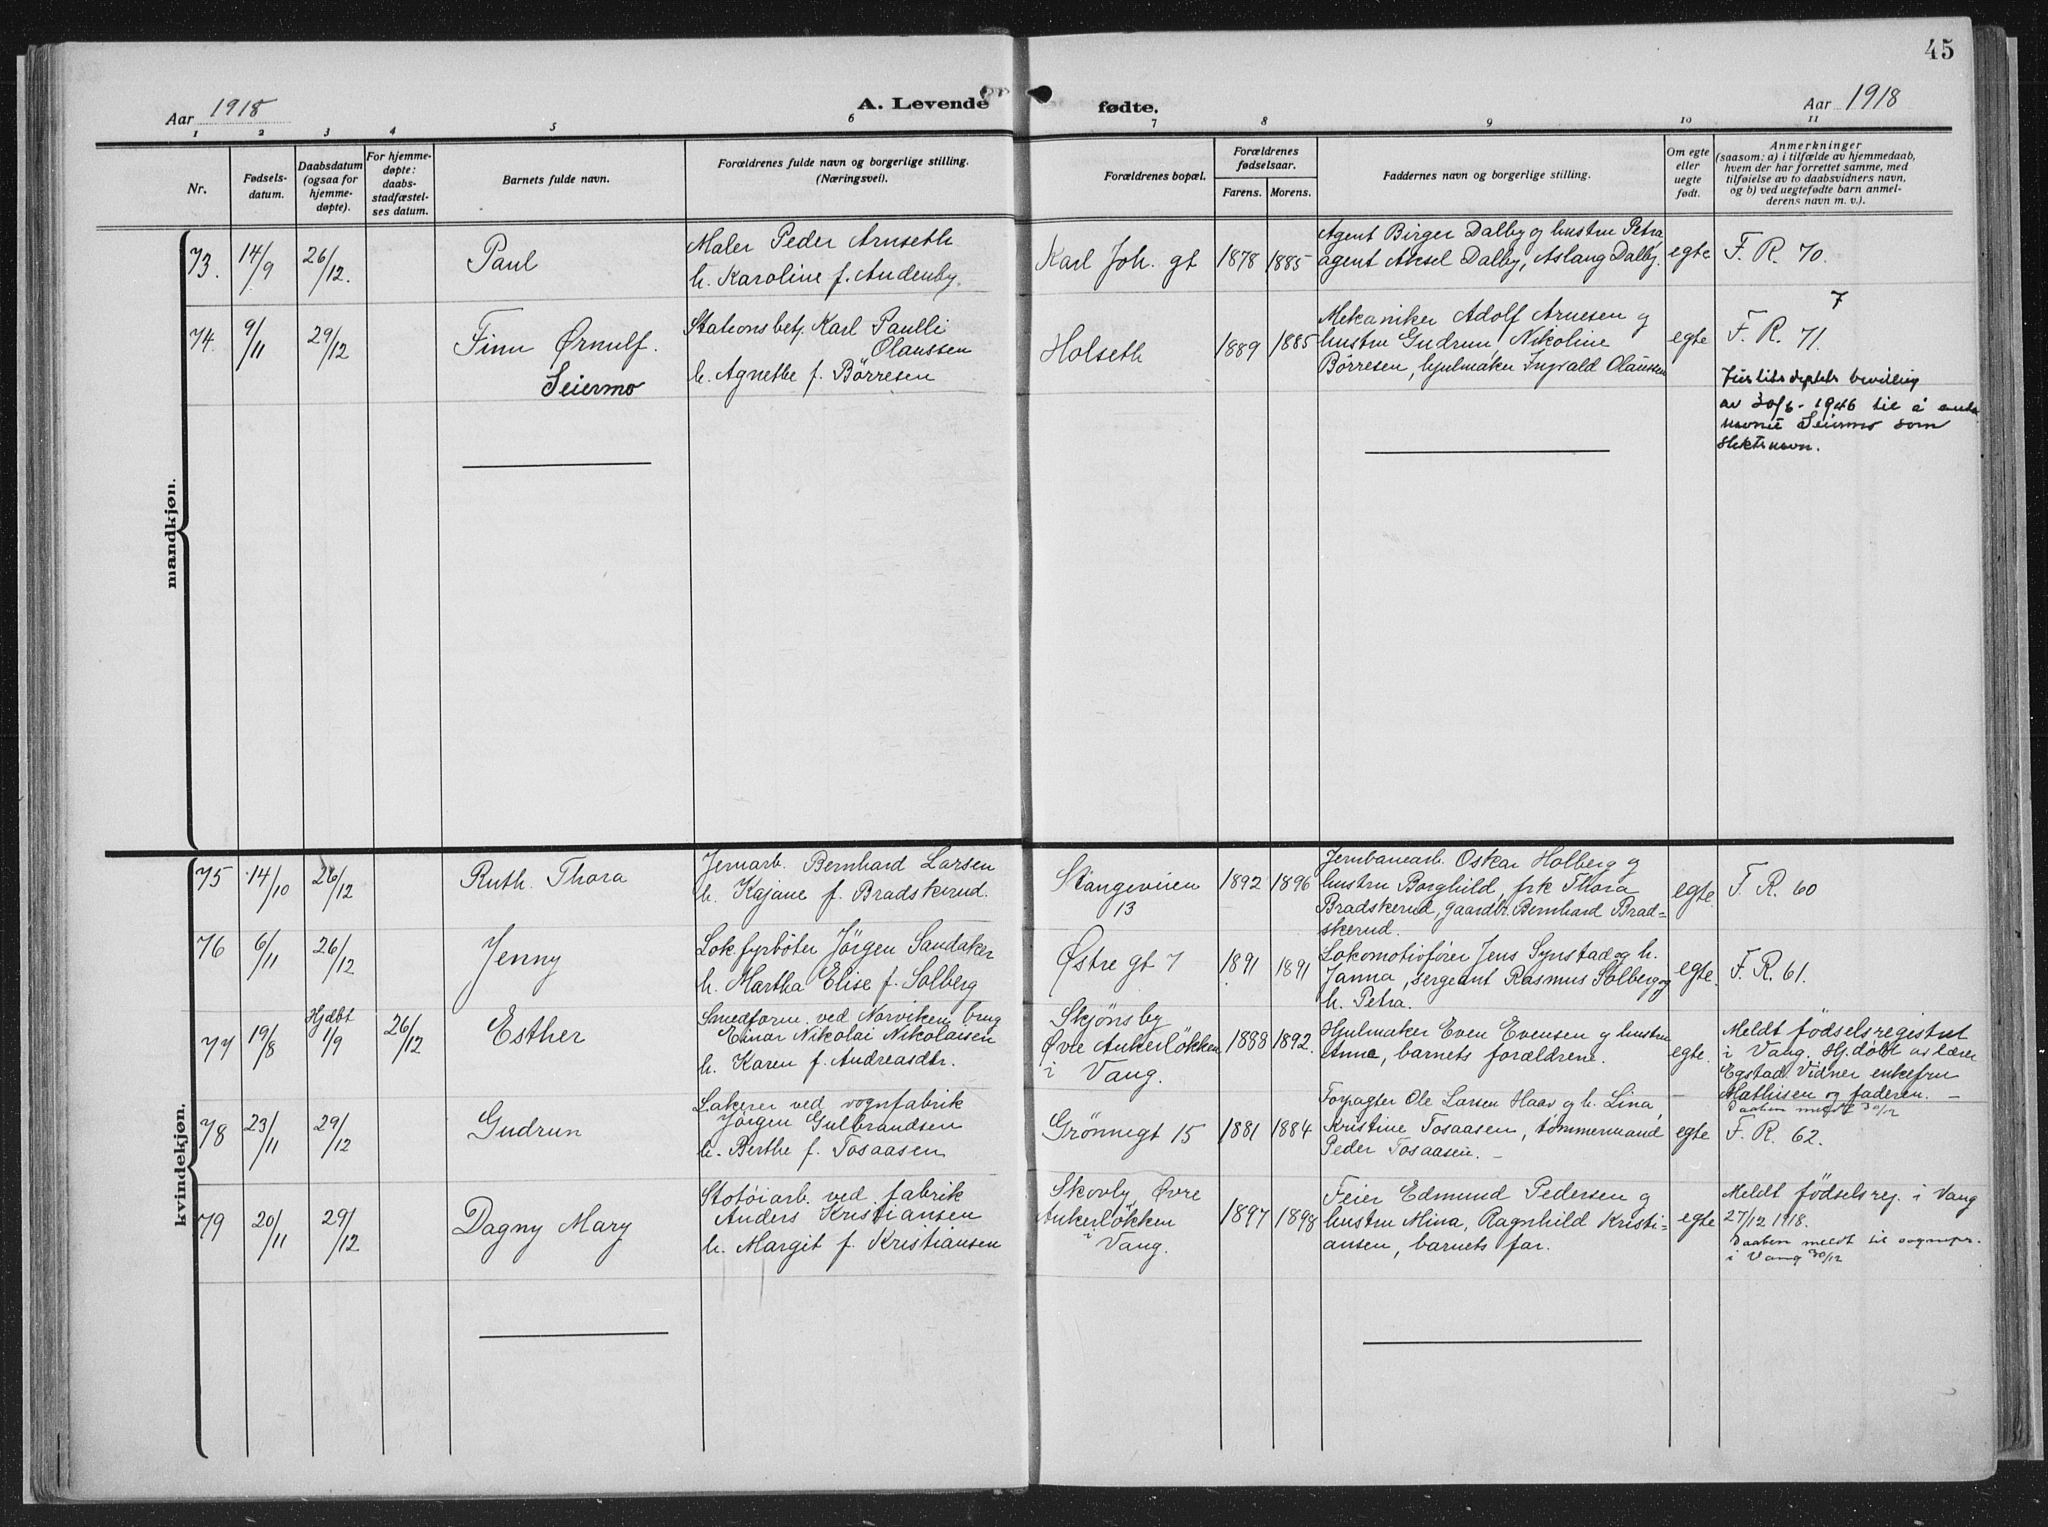 45
Aar 1918
A. Levende fødte.
Aar 1918
1 2 3 4 5 6 7 8 9 10 11
Nr.
Fødsels-
datum.
Daabsdatum
(ogsaa for
hjemme-
døpte).
For hjemme-
døpte:
daabs-
stadfæstel-
ses datum.
Barnets fulde navn.
Forældrenes fulde navn og borgerlige stilling.
(Næringsvei).
Forældrenes bopæl.
Forældrenes
fødselsaar.
Farens. Morens.
Faddernes navn og borgerlige stilling.
Om egte
eller
uegte
født.
Anmerkninger
(saasom: a) i tilfælde av hjemmedaab,
hvem der har forrettet samme, med
tilføielse av to daabsvidners navn,
og b) ved uegtefødte barn anmel-
derens navn m. v.).
mandkjøn.
73. 14/9 26/12.
Paul
Maler Peder Arnseth
h. Karoline f. Andenby.
Karl Joh. gt
1878 1885
Agent Birger Dalby og hustru Petra,
agent Aksel Dalby, Aslaug Dalby.
egte
F. R. 70.
74. 9/11 29/12
Finn Ørnulf.
Seiermo
Stationsbetj. Karl Paulli
Olaussen
h. Agnethe f. Börresen
Holseth
1889 1885
Mekaniker Adolf Arnesen og
hustru Gudrun, Nikoline
Børresen, hjulmaker Ingvald Olaussen
egte
7
F. R. 71.
Justitsdeptets bevilling
av 30/6-1946 til å anta
navnet Seiermo som
slektsnavn.
kvindekjøn.
75 14/10 26/12
Ruth Thora
Jernarb. Bernhard Larsen
h. Kajane f. Bradskerud.
Stangeveien
13
1892 1896
Jernbanearb. Oskar Holberg og
hustru Borghild, frk Thora
Bradskerud, gaardbr. Bernhard Brad-
skerud.
egte.
F. R. 60
76 6/11 26/12
Jenny
Lok.fyrbøter Jörgen Sandaker
h. Martha Elise f. Solberg
Østre gt 7
1891 1891
Lokomotivfører Jens Synstad og h.
Janna, sergeant Rasmus Solberg og
h. Petra.
egte.
F. R. 61.
77 19/8 Hjdøbt 1/9 26/12
Esther
Smedform. ved Norviken brug
Einar Nikolai Nikolaisen
h. Karen f. Andreasdtr.
Skjönsby
Øvre Ankerløkken
i Vang.
1888 1892.
Hjulmaker Even Evensen og hustru
Anna, barnets forældrene.
egte.
Meldt fødselsregistret
i Vang. Hj.døbt av lærer
Egstad. Vidner enkefru
Mathisen og faderen. —
Daaben meldt 30/12
78 23/11 29/12
Gudrun
Lakerer ved vognfabrik
Jörgen Gulbrandsen
h. Berthe f. Tosaasen
Grönnegt 15
1881 1884
Forpagter Ole Larsen Haav og h. Lina,
Kristine Tosaasen, tømmermand
Peder Tosaasen. —
egte
F. R. 62.
79 20/11 29/12
Dagny Mary
Støtöiarb. ved fabrik
Anders Kristiansen
h. Margit f. Kristiansen
Skovby, Øvre
Ankerløkken
i Vang.
1897 1898
Feier Edmund Pedersen og
hustru Mina, Ragnhild Kristi-
ansen, barnets far.
egte
Meldt fødselsrej. i Vang
27/12 1918.
Daaben meldt til sognepr.
i Vang 30/12